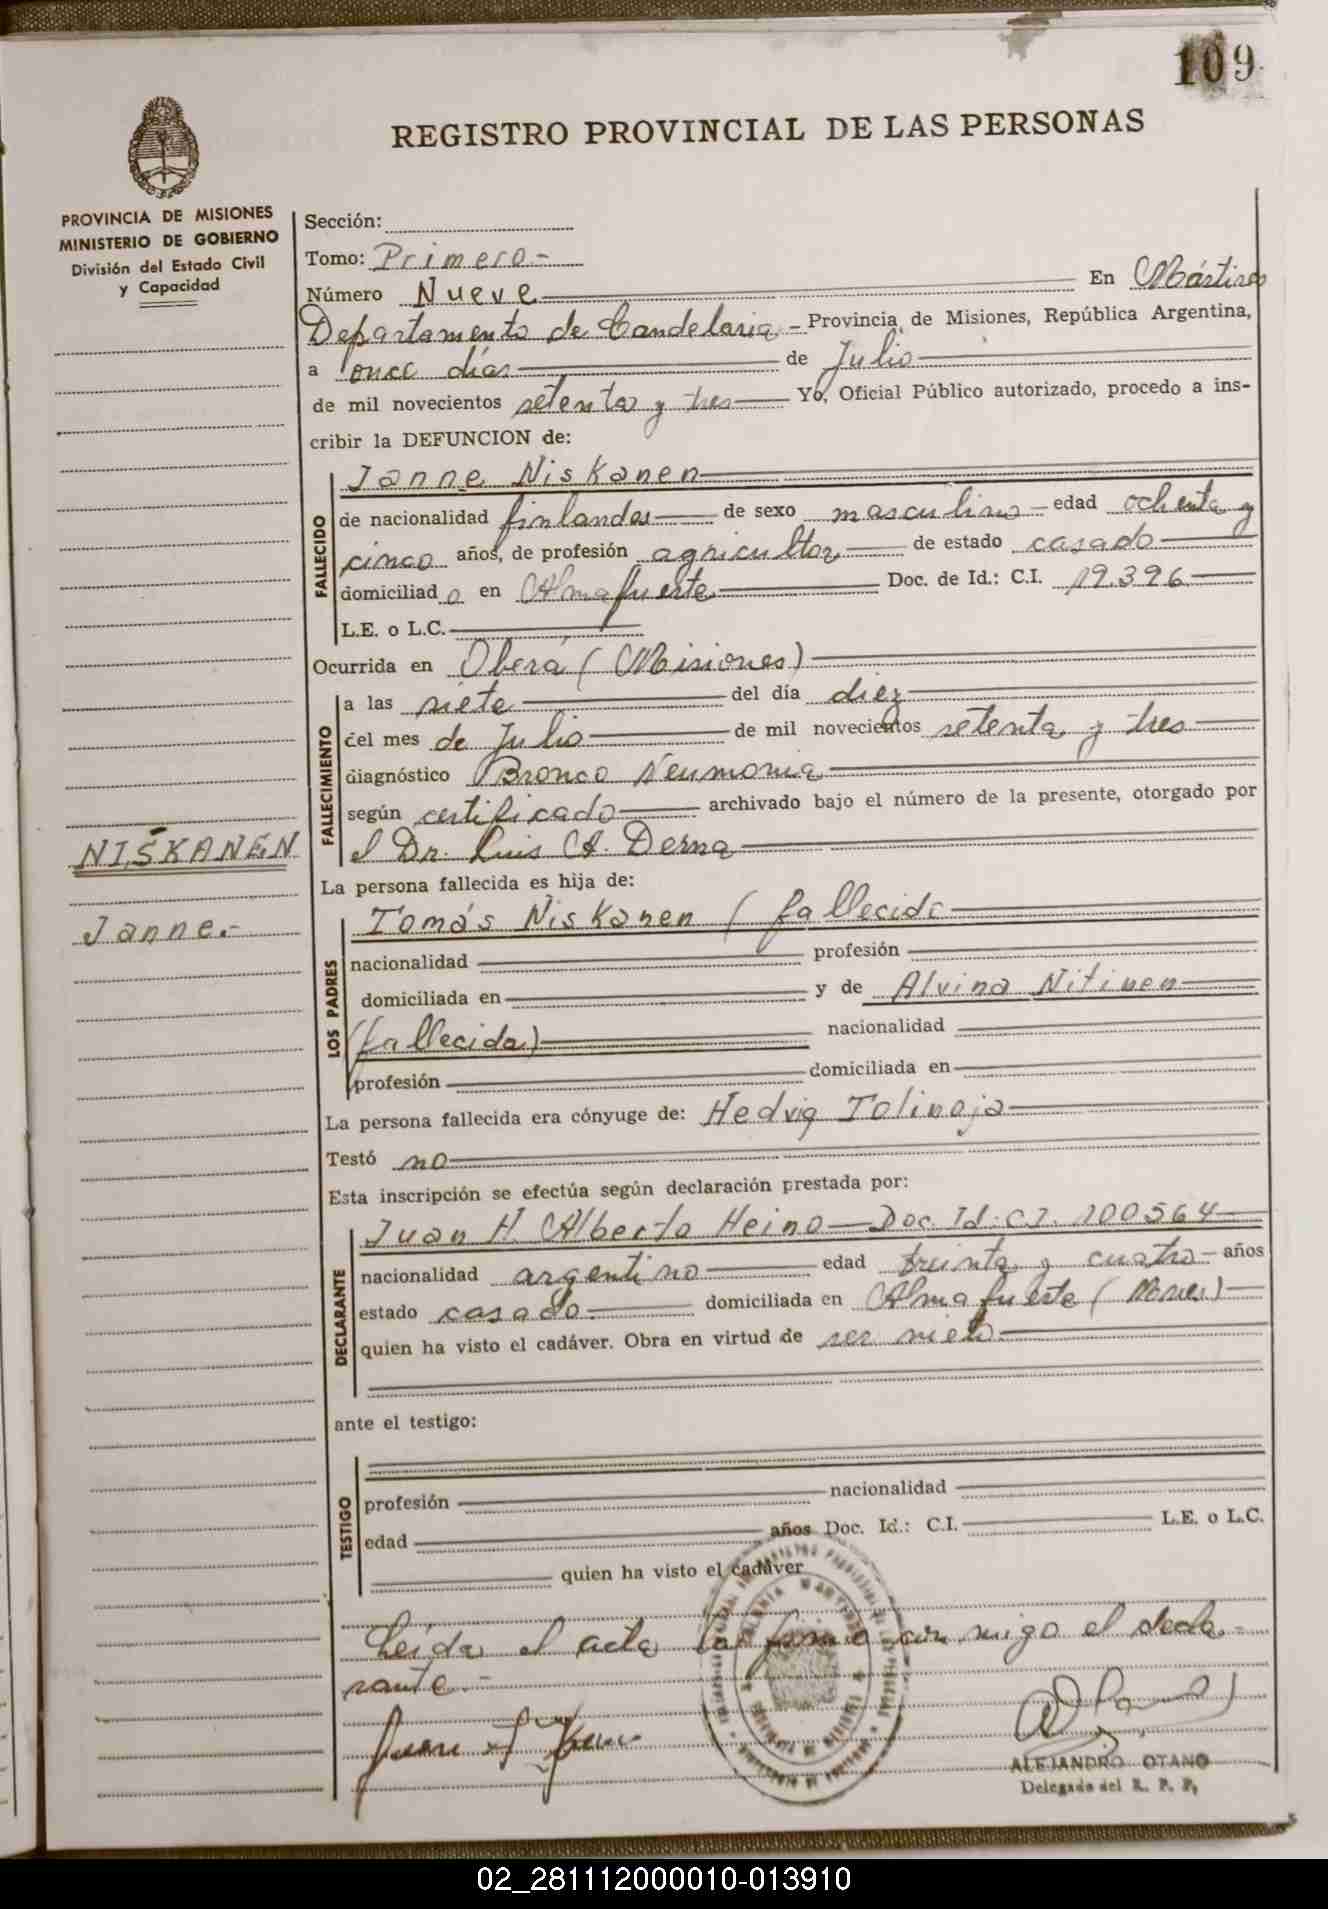 109
REGISTRO PROVINCIAL DE LAS PERSONAS
PROVINCIA DE MISIONES
MINISTERIO DE GOBIERNO
División del Estado Civil
y Capacidad
NISKANEN
Janne.-
Sección:
Tomo: Primero-
Número Nueve En Mártires
Departamento de Candelaria - Provincia de Misiones, República Argentina,
a once días de Julio
de mil novecientos setenta y tres Yo, Oficial Público autorizado, procedo a ins-
cribir la DEFUNCION de:
FALLECIDO
Janne Niskanen
de nacionalidad finlandes de sexo masculino edad ochenta y
cinco años, de profesión agricultor de estado casado
domiciliado en Almafuerte Doc. de Id.: C.I. 19.396
L.E. o L.C.
Ocurrida en Oberá (Misiones)
FALLECIMIENTO
a las siete del día diez
del mes de Julio de mil novecientos setenta y tres
diagnóstico Bronco Neumonia
según certificado archivado bajo el número de la presente, otorgado por
el Dr. Luis A. Derna
La persona fallecida es hija de:
LOS PADRES
Tomás Niskanen (fallecido
nacionalidad profesión
domiciliada en y de Alvina Nitinen
(fallecida) nacionalidad
profesión domiciliada en
La persona fallecida era cónyuge de: Hedvig Tolinoja
Testó no
Esta inscripción se efectúa según declaración prestada por:
DECLARANTE
Juan H. Alberto Heino Doc. Id: C.I. 100564
nacionalidad argentino edad treinta y cuatro años
estado casado domiciliada en Almafuerte (Mnes)
quien ha visto el cadáver. Obra en virtud de ser nieto
ante el testigo:
TESTIGO
profesión nacionalidad
edad años Doc. Id.: C.I. L.E. o L.C.
quien ha visto el cadáver
Leida el acta la firma conmigo el decla-
rante.-
ALEJANDRO OTANO
Delegado del R. P. P.
02_281112000010-013910